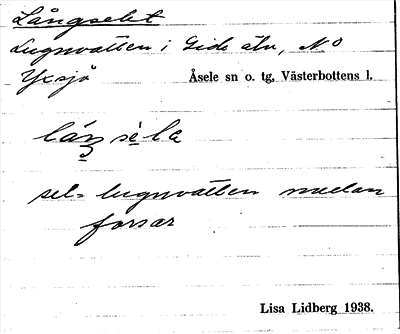 Långselet
Lugnvatten i Gide älv, N O
Yxsjö Åsele sn o. tg, Västerbottens l.
låŋ sè la
sel = lugnvatten mellan
forsar
Lisa Lidberg 1938.